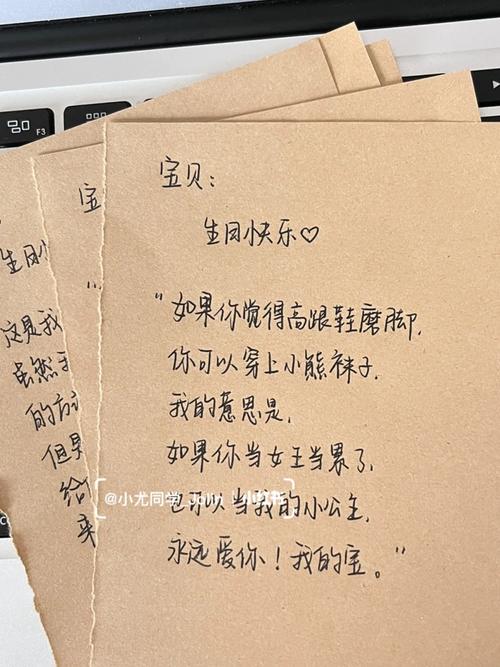 宝贝：
生日快乐♡
“如果你觉得高跟鞋磨脚，
你可以穿上小熊袜子，
我的意思是，
如果你当女王当累了，
也可以当我的小公主，
永远爱你！我的宝。”
@小尤同学_John 小红书
宝
生日小
“
这是我
虽然
的方
但是
给
来
F3